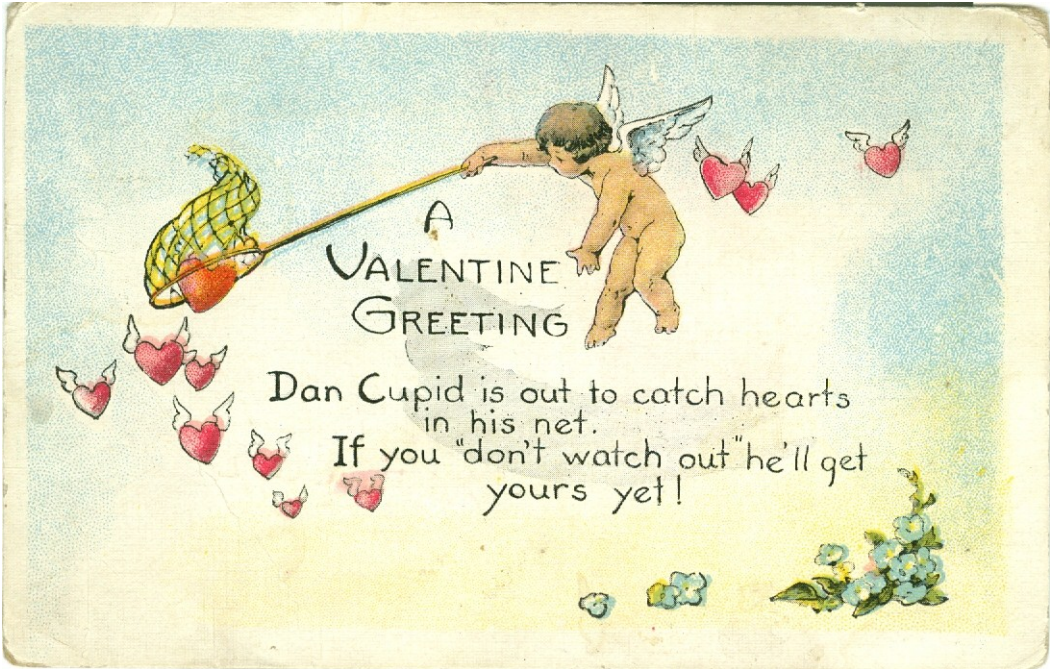 A
VALENTINE
GREETING
Dan Cupid is out to catch hearts
in his net.
If you "don't watch out" he'll get
yours yet!